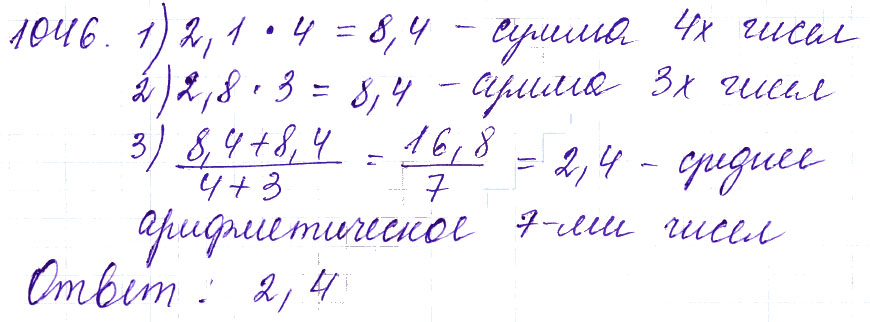 1046. 1) 2,1 · 4 = 8,4 – сумма 4х чисел
2) 2,8 · 3 = 8,4 – сумма 3х чисел
3) (8,4+8,4)/(4+3) = 16,8/7 = 2,4 – среднее
арифметическое 7-ми чисел
Ответ: 2,4